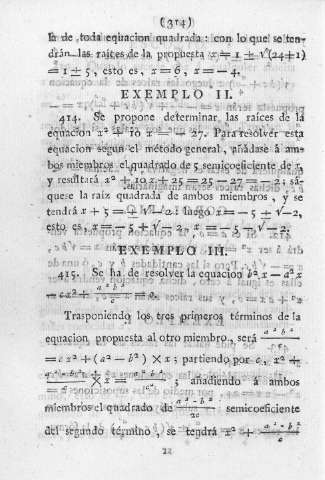 (314)
la de toda equacion quadrada: con lo que se ten-
drán las raíces de la propuesta x = 1 ± √(24+1)
= 1 ± 5, esto es, x = 6, x = -4.
EXEMPLO II.
414. Se propone determinar las raíces de la
equacion x² + 10 x = - 27. Para resolver esta
equacion segun el método general, añádase á am-
bos miembros el quadrado de 5 semicoeficiente de x,
y resultará x² + 10 x + 25 = 25 - 27 = - 2: sá-
quese la raiz quadrada de ambos miembros, y se
tendrá x + 5 = ± √-2: luego x = - 5 ± √-2,
esto es, x = - 5 + √-2, x = - 5 - √-2.
EXEMPLO III.
415. Se ha de resolver la equacion b² x - a² x
- c x² + a² b² / c = 0.
Trasponiendo los tres primeros términos de la
equacion propuesta al otro miembro, será a² b² / c
= c x² + (a² - b²) × x; partiendo por c, x² +
a² - b² / c × x = a² b² / c²; añadiendo á ambos
miembros el quadrado de a² - b² / 2c semicoeficiente
del segundo término, se tendrá x² + a² - b² / c